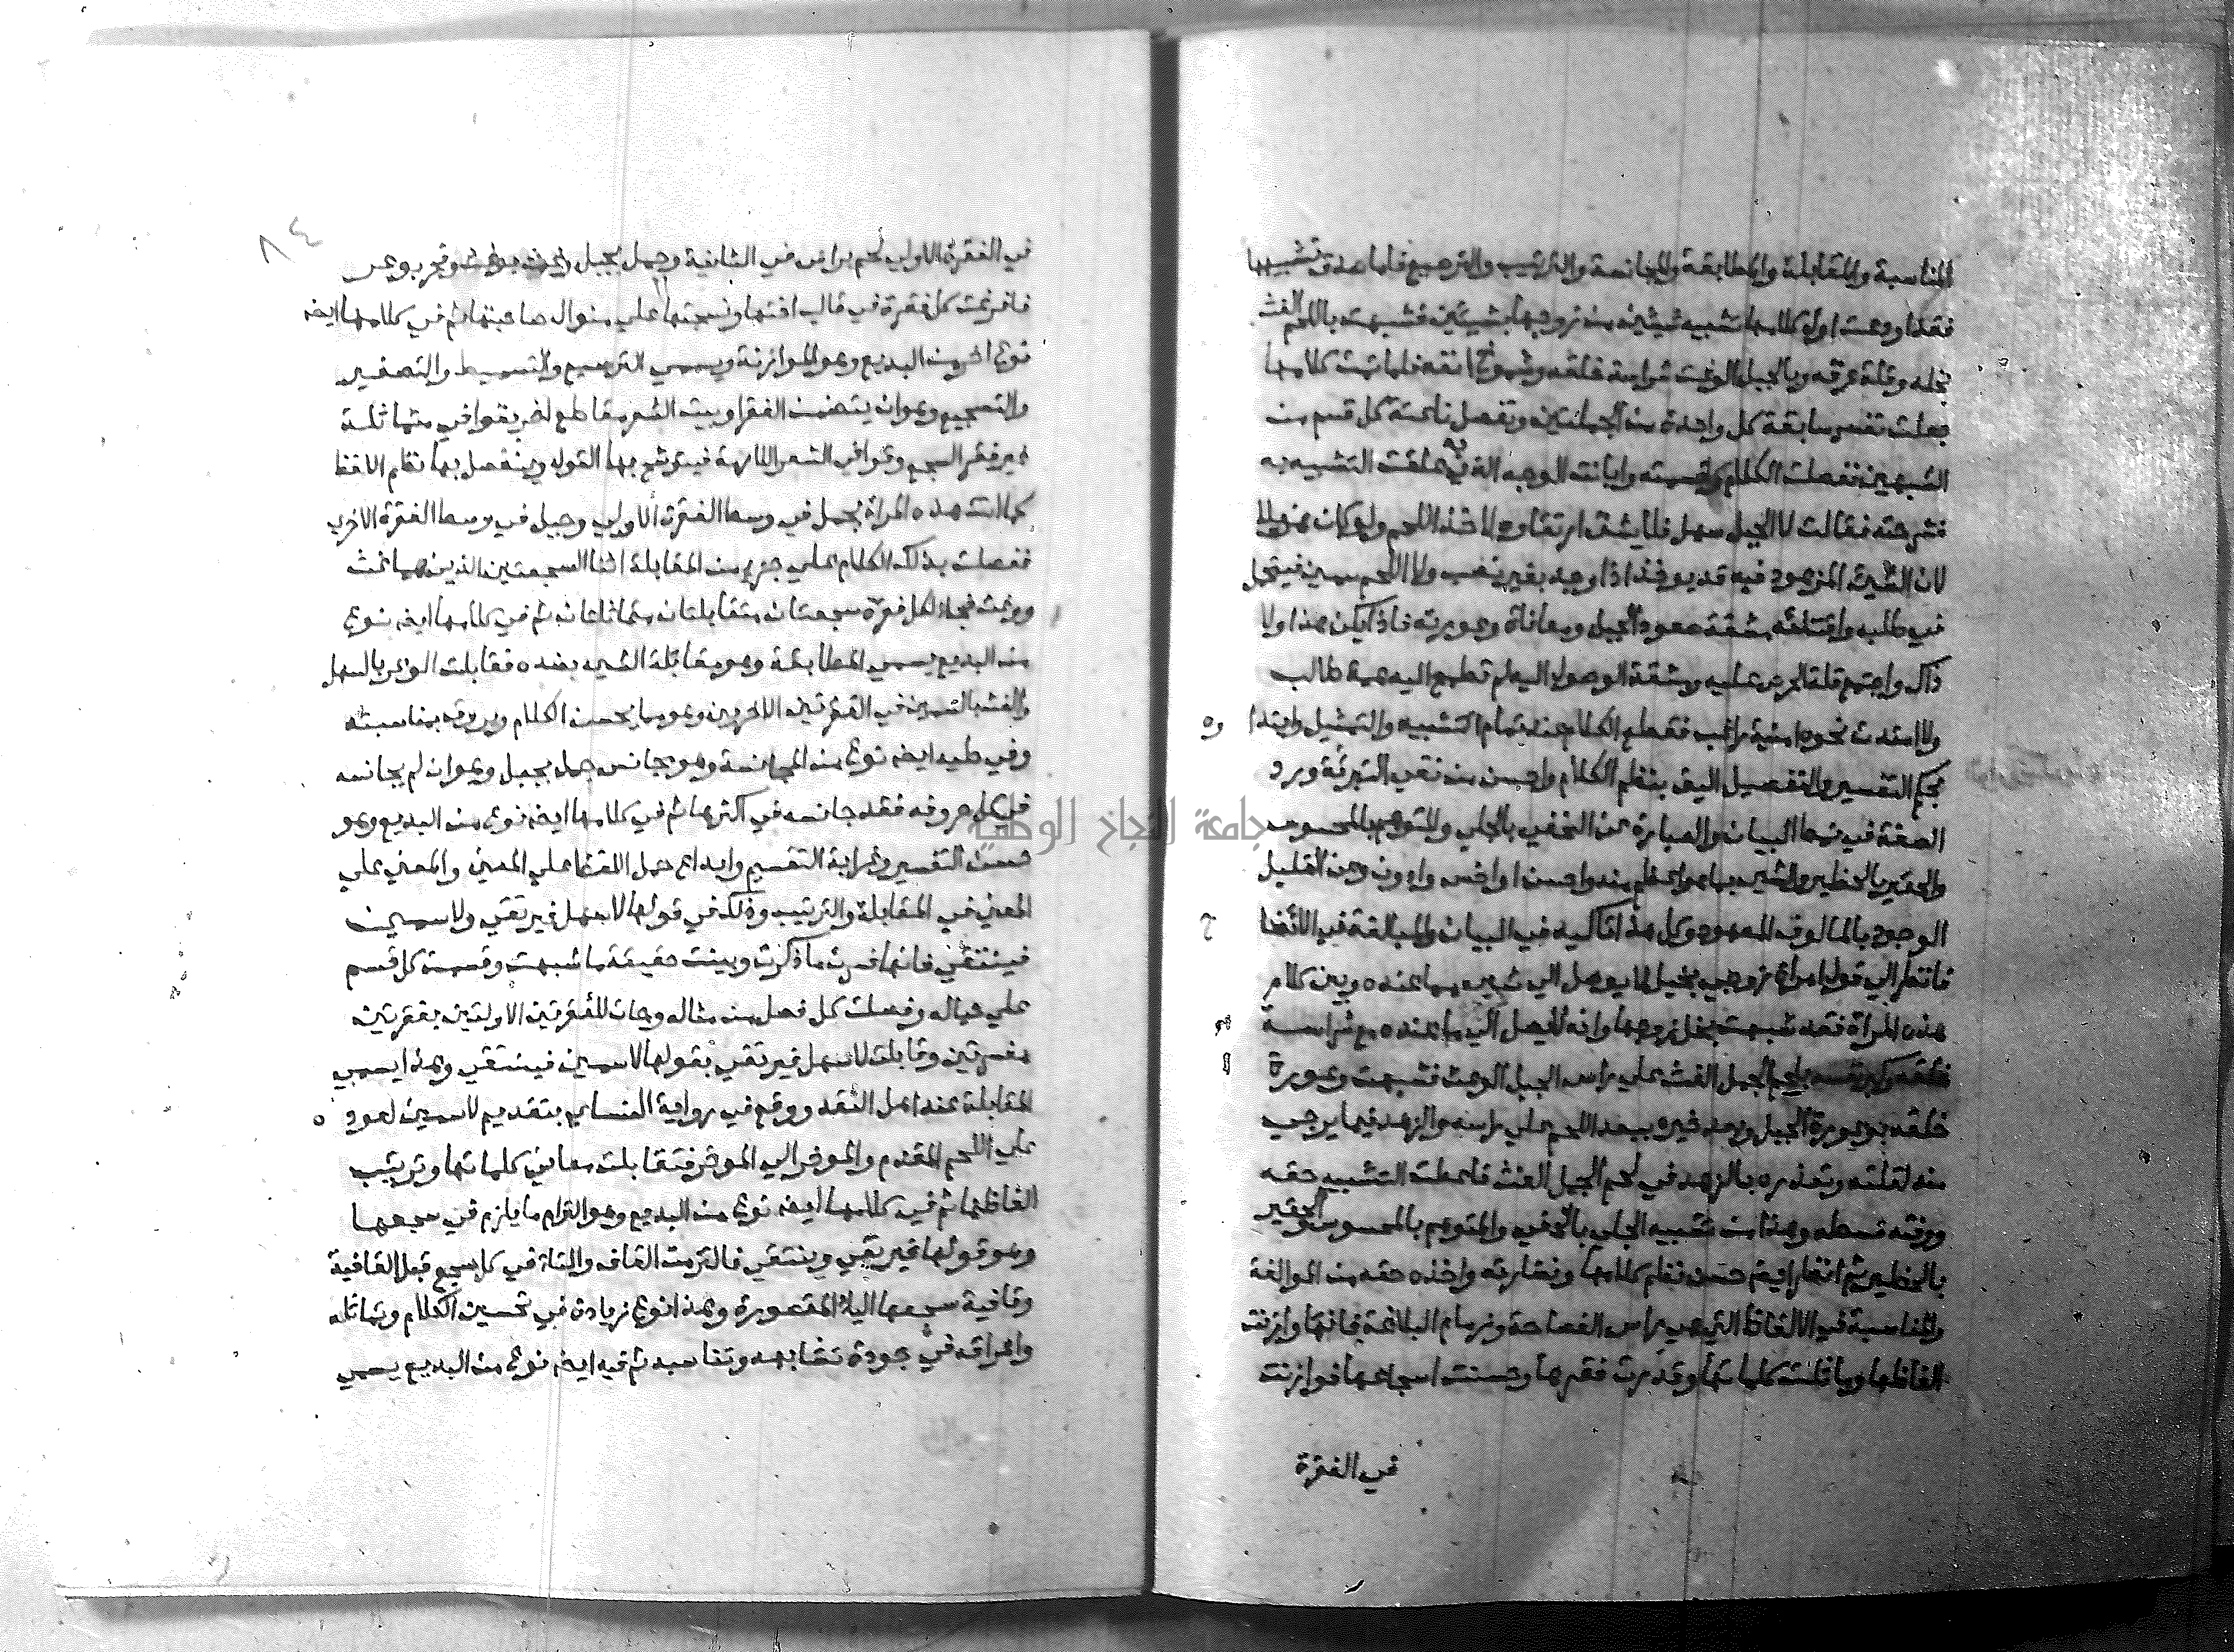 المناسبة والمقابلة والمطابقة والمجانسة والترتيب والترصيع فاما صدق تشبيهها
فقد اودعت اول كلامها تشبيه شيئين من زوجها بشيئين فشبهت باللحم الغث
بخله وقلة عرفه وبالجبل الوعث شراسة خلقه وشموخ انفه فلما تمت كلامها
جعلت تفسر سابقة كل واحدة من الجملتين وتفصل ناعتة كل قسم من
الشبهين ففصلت الكلام وقسمته وابانت الوجه الذي به علقت التشبيه به
فشرحته فقالت لا الجبل سهل فلا يشق ارتقاوه لاخذ اللحم ولو كان هزيلا
لان الشيء المزهود فيه قد يوخذ اذا وجد بغير نصب ولا اللحم سمين فيتحمل
في طلبه واقتنائه مشقة صعود الجبل ومعاناة وعورته فاذا لم يكن هذا ولا
ذاك واجتمع قلة الحرص عليه ومشقة الوصول اليه لم تطمح اليه همة طالب
ولا امتدت نحوه امنية راغب فقطع الكلام عند تمام التشبيه والتمثيل وابتدا
بحكم التفسير والتفصيل اليق بنظم الكلام واحسن من نفي التبرئة ورد
الصفة في نمط البيان والعبارة عن الخفي بالجلي والمتوهم بالمحسوس
والحقير بالخطير والشيء بما هو اعظم منه واحسن او اخس وادون وعن القليل
الوجود بالمالوف المعهود وكل هذا تاكيد في البيان والمبالغة في الايضا
فانظر الى قول امراة زوجي بخيل لا يوصل الى شيء مما عنده وبين كلام
هذه المراة فقد شبهت بخل زوجها وانه لا يصل اليه ما عنده مع شراسة
خلقه وكبر نفسه بلحم الجمل الغث على راس الجبل الوعث فشبهت وعورة
خلقه بوعورة الجبل وبعد خيره ببعد اللحم على راسه والزهد فيما يرجى
منه لقلته وتعذره بالزهد في لحم الجمل الغث فاعطت التشبيه حقه
ووفته قسطه وهذا من تشبيه الجلي بالخفي والمتوهم بالمحسوس والحقير
بالخطير ثم انظر ايضا حسن نظم كلامها ونضارته واخذه حقه من الموالفة
والمناسبة في الالفاظ التي هي راس الفصاحة وزمام البلاغة فانها وازنت
الفاظها وماثلت كلماتها وقدرت فقرها وحسنت اسجاعها فوازنت
في الفقرة
٨٤
في الفقرة الاولى لحم براس في الثانية وجمل بجبل وغث بوعث وبحر بوعر
فافرغت كل فقرة في قالب اختها ونسجتها على منوال صاحبتها ثم في كلامها ايضا
نوع اخر من البديع وهو الموازنة ويسمى الترصيع والتسميط والتصفير
والتسجيع وهو ان يتضمن الفقر او بيت الشعر مقاطع اخر بقوافي متماثلة
غير فقر السجع وقوافي الشعر اللازمة فيتوشح بها القول وينفصل بها نظم اللفظ
كما اتت هذه المراة بجمل في وسط الفقرة الاولى وجبل في وسط الفقرة الاخرى
ففصلت بذلك الكلام على جزء من المقابلة اثنا السجعتين اللذين هما غث
ووعث فجا لكل فقرة سجعتان متقابلتان متماثلتان ثم في كلامها ايضا نوع
من البديع يسمى المطابقة وهو مقابلة الشيء بضده فقابلت الوعر بالسهل
والغث بالسمين في الفقرتين الاخريين وهو مما يحسن الكلام ويروقه بمناسبته
وفي طيه ايضا نوع من المجانسة وهو تجانس جمل بجبل وهو ان لم يجانسه
في كل حروفه فقد جانسه في اكثرها ثم في كلامها ايضا نوع من البديع وهو
حسن التفسير وغرابة التقسيم وابداع حمل اللفظ على المعنى والمعنى على
المعنى في المقابلة والترتيب وذلك في قولها لا سهل فيرتقى ولا سمين
فينتقى فانها فسرت ما ذكرت وبينت حقيقة ما شبهت وقسمت كل قسم
على حياله وفصلت كل فصل من مثاله وجات للفقرتين الاولتين بفقرتين
مفسرتين وقابلت لا سهل فيرتقى بقولها لا سمين فينتقى وهذا يسمى
المقابلة عند اهل النقد ووقع في رواية النسائي بتقديم لا سمين لعود
على اللحم المقدم والموخر الى الموخر فتقابلت معاني كلماتها وترتيب
الفاظها ثم في كلامها ايضا نوع من البديع وهو التزام ما يلزم في سجعها
وهو قولها فيرتقى وينتقى فالتزمت القاف والتاء في كل سجع قبل القافية
وقافية سجعها اليا المقصورة وهذا نوع زيادة في تحسين الكلام وتماثله
واغراقه في جودة تشابهه وتناسبه ثم فيه ايضا نوع من البديع يسمى
جامعة النجاح الوطنية